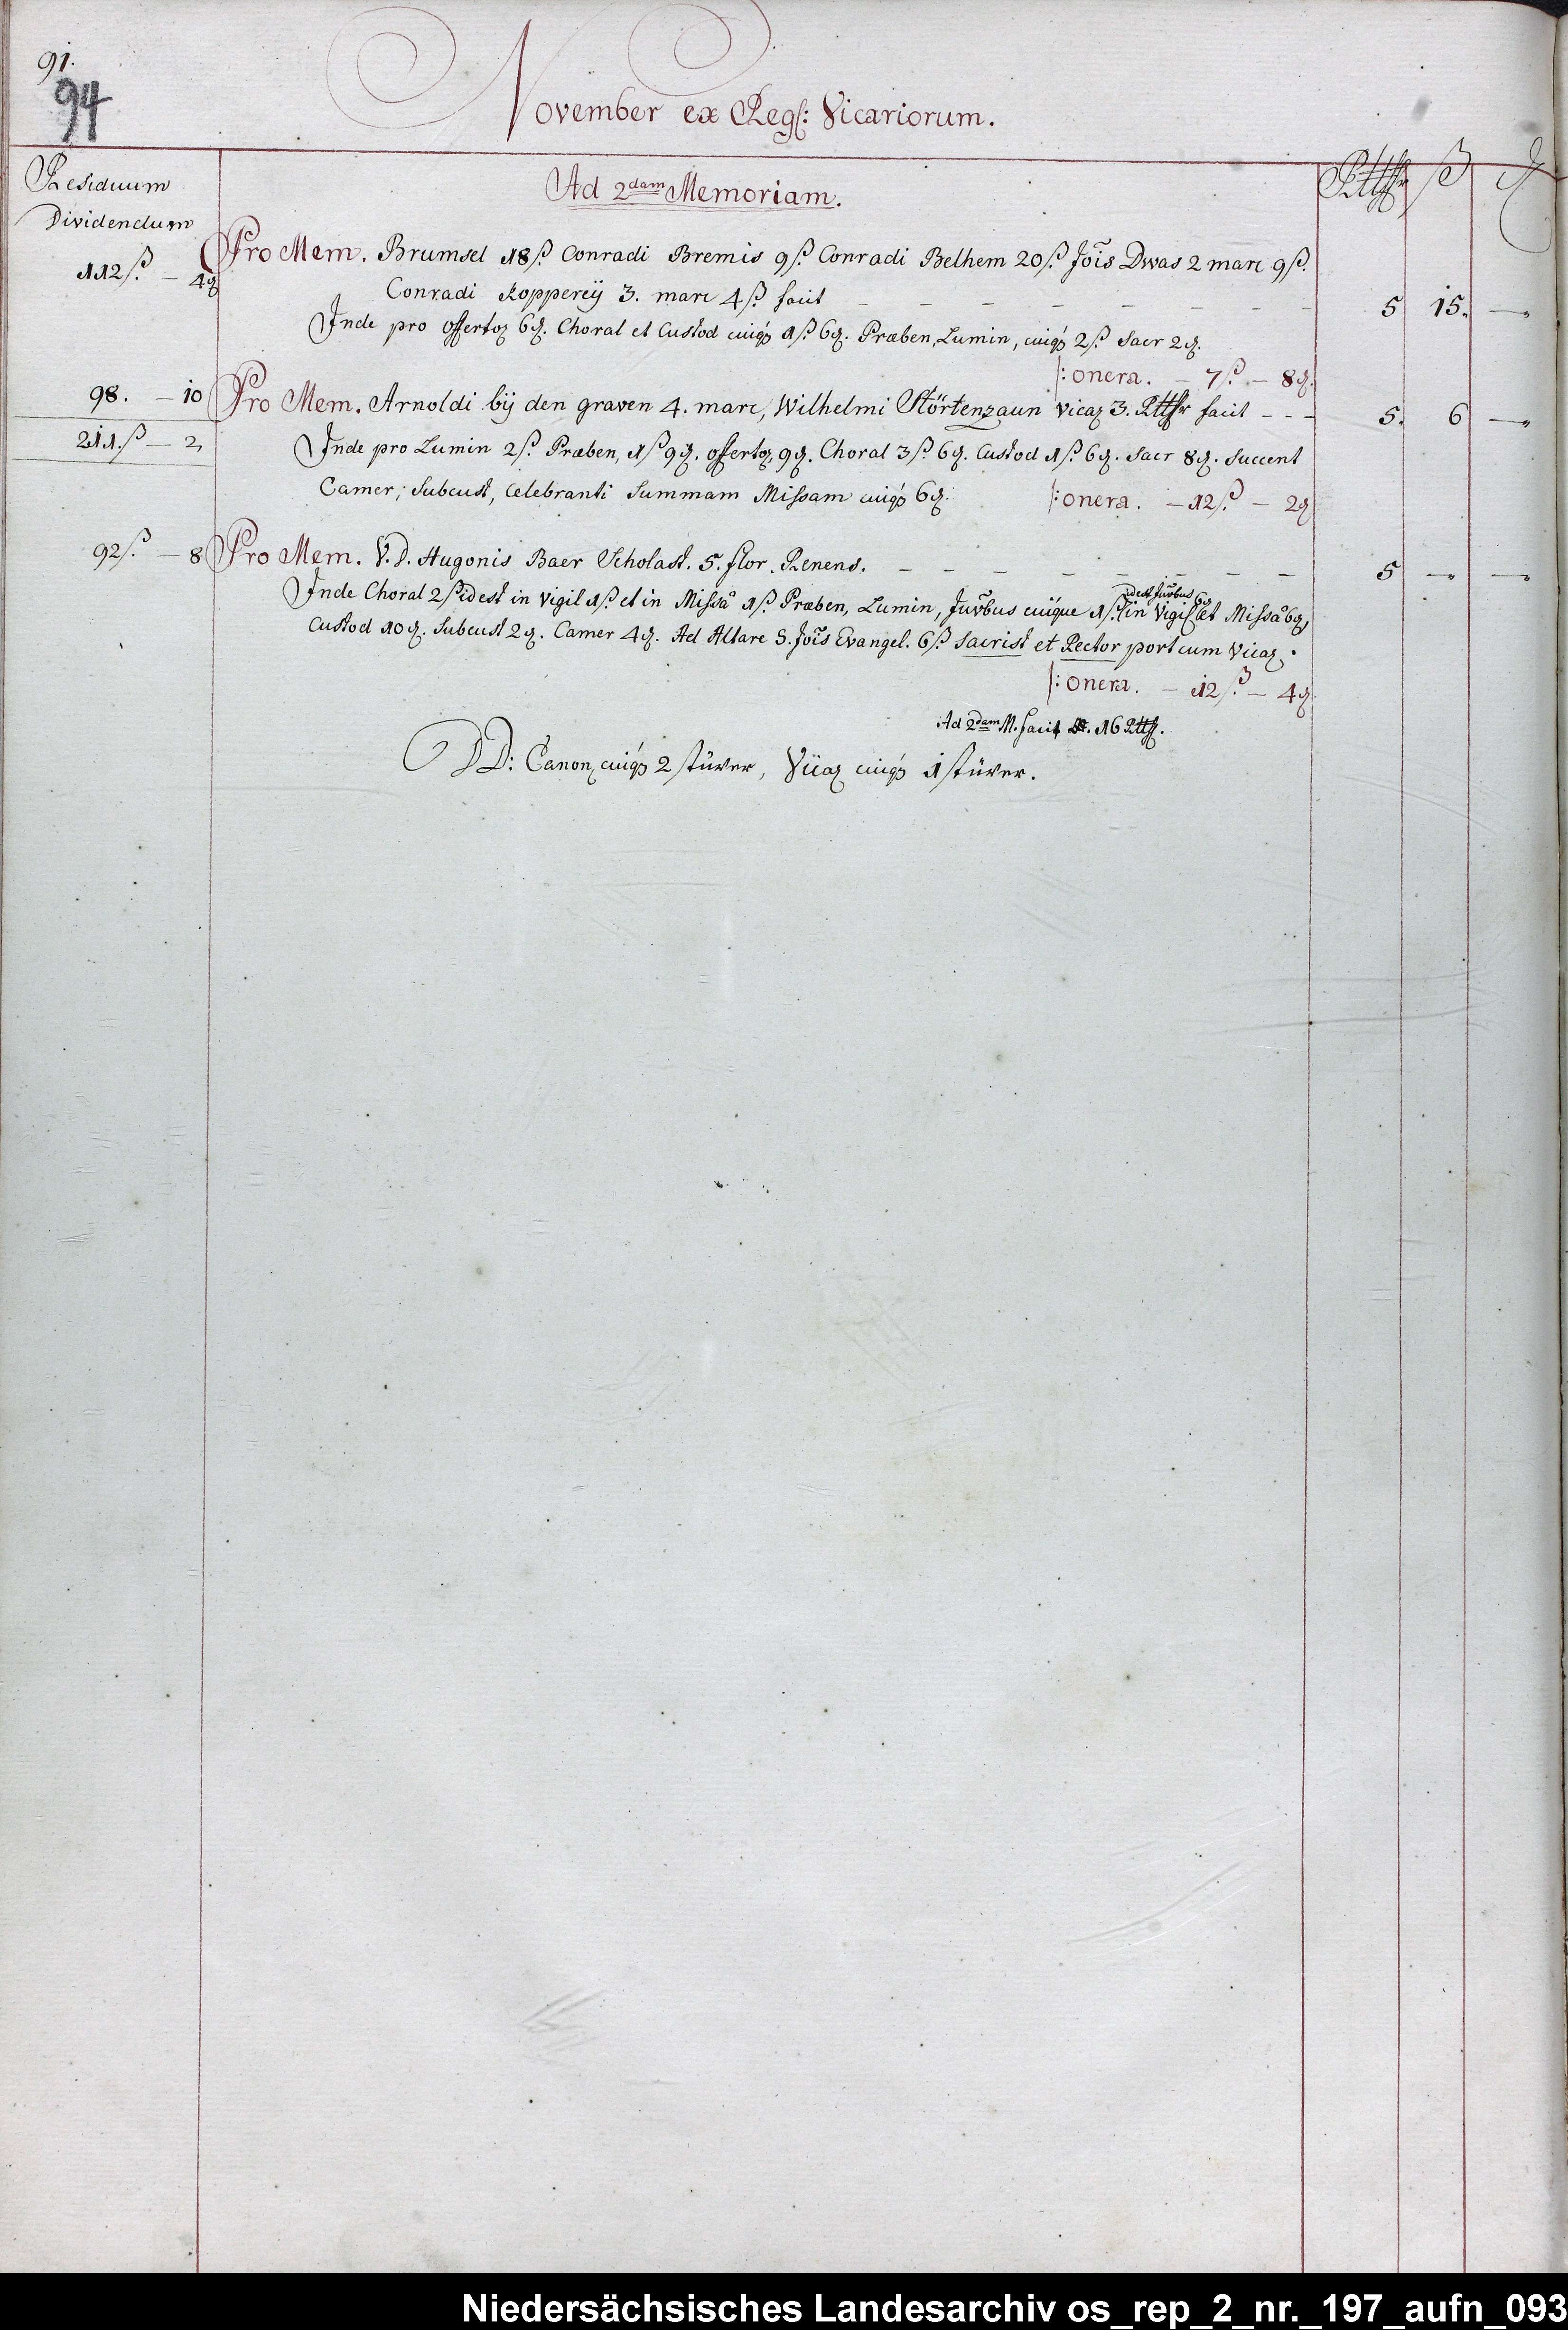 91.
94
November ex Regs: Vicariorum.
Residuum
Dividendum
Ad 2dam Memoriam.
Rttlr ß ₰
112ß. – 4₰
Pro Mem. Brumsel 18ß. Conradi Bremis 9ß. Conradi Belhem 20ß. Jois Dwas 2 marc 9ß.
Conradi Koppereÿ 3. marc 4ß. facit – – – – – – – 5 15. —
Inde pro offertoʒ 6₰. Choral et Custod cuiqʒ 1ß. 6₰. Præben, Lumin, cuiqʒ 2ß. Sacr 2₰.
|: onera. – 7ß. – 8₰.
98. – 10 Pro Mem. Arnoldi bÿ den graven 4. marc, Wilhelmi Störtenzaun Vicaʒ 3. Rttlr facit – – – 5. 6 —
211.ß – 2
Inde pro Lumin 2ß. Præben, 1ß 9₰. offertoʒ 9₰. Choral 3ß. 6₰. Custod 1ß. 6₰. Sacr 8₰. Succent
Camer, Subcust, Celebranti Summam Missam cuiqʒ 6₰. |: onera. – 12ß. – 2₰
92ß. – 8 Pro Mem. V. D. Hugonis Baer Scholast. 5. flor. Renens. – – – – – – – 5 — —
idest Juvbus 6₰
Inde Choral 2ß idest in Vigil 1ß. et in Missâ 1ß. Præben, Lumin, Juvbus cuique 1ß. in Vigil et Missâ 6₰,
Custod 10₰. Subcust 2₰. Camer 4₰. Ad Altare S. Jois Evangel. 6ß. Sacrist et Rector port cum Vicaʒ.
|: onera. – 12ß. – 4₰
Ad 2dam M. facit 16 Rttlr.
DD: Canonʒ cuiqʒ 2 stüver, Vicaʒ cuiqʒ 1 stüver.
Niedersächsisches Landesarchiv os_rep_2_nr._197_aufn_093